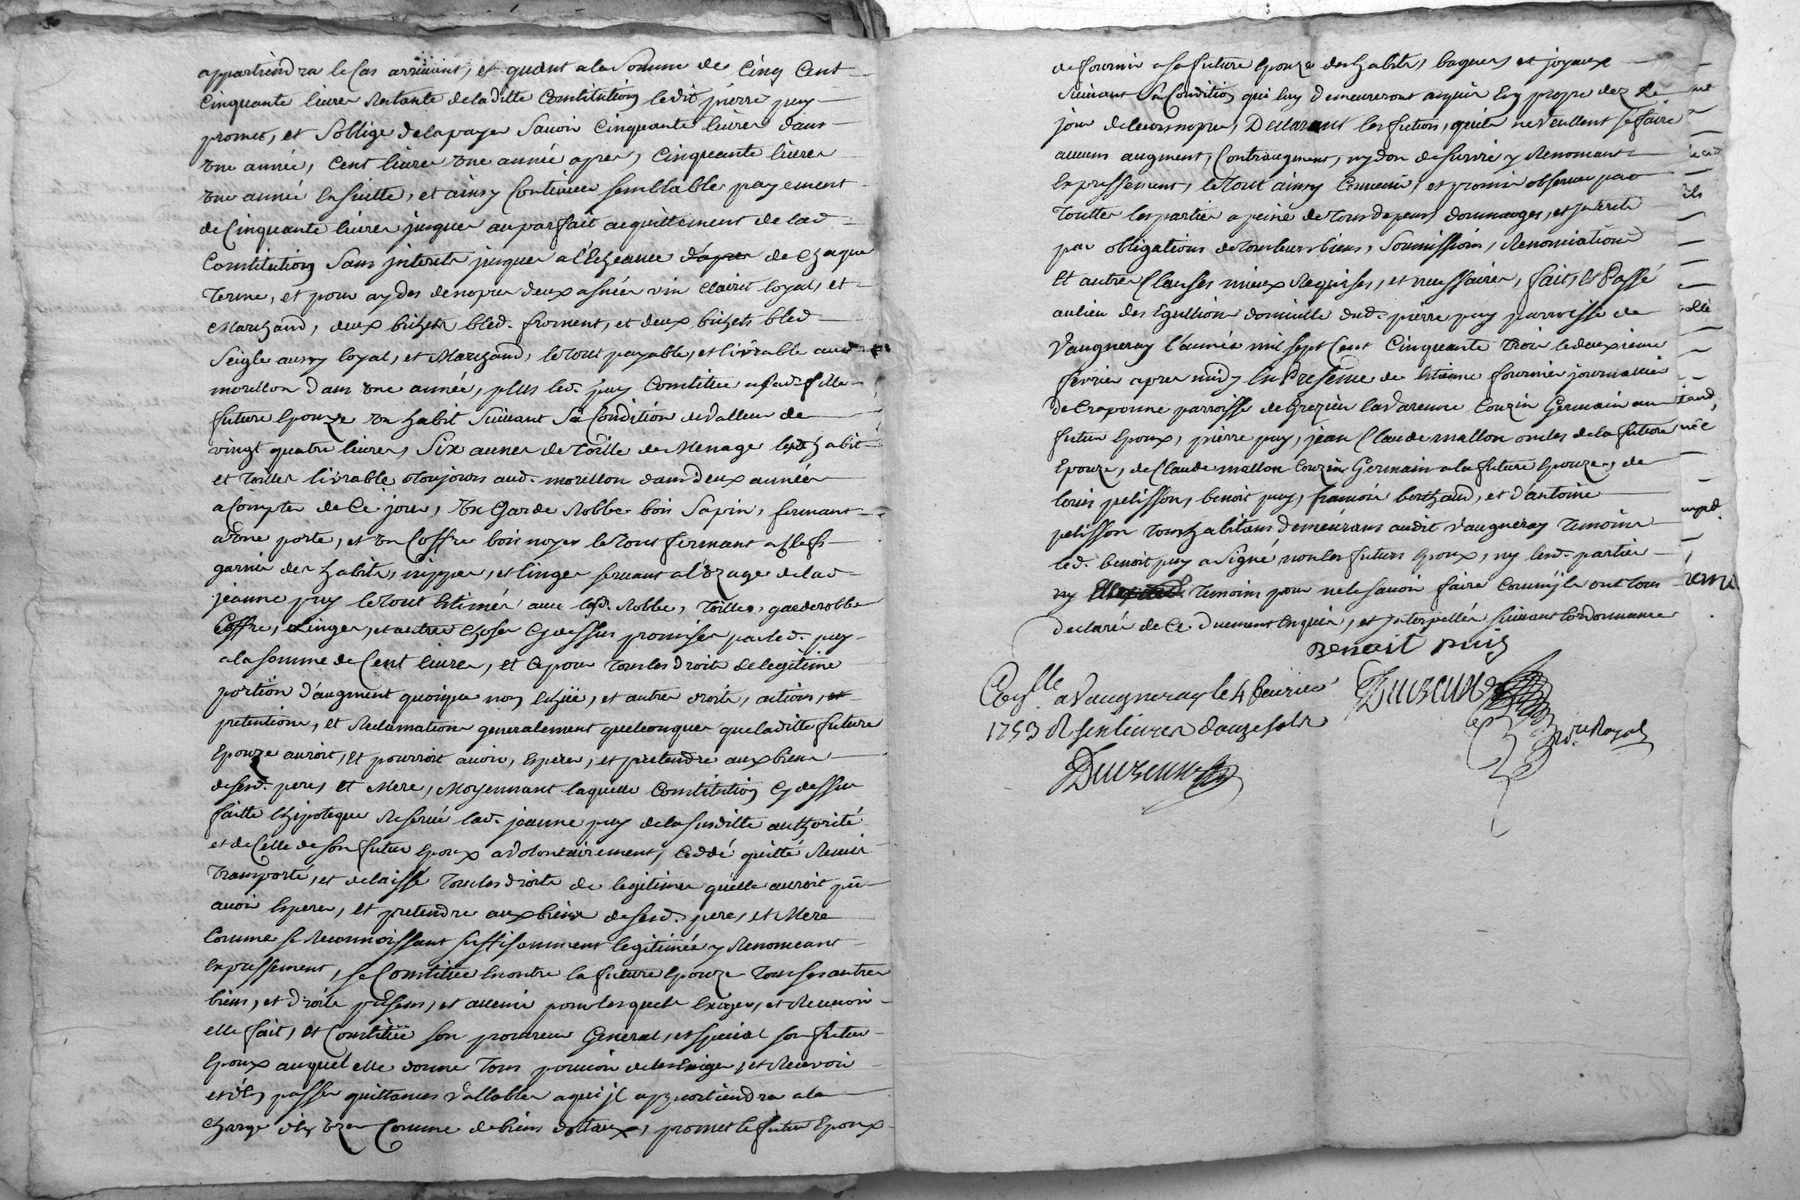 appartiendra le cas arrivant, et quant a la somme de Cinq Cent
Cinquante livres Restante de laditte Constitution ledit pierre puy
promet, et s'oblige de la payer savoir Cinquante livres dans
une année, Cent livres une année apres, Cinquante livres
une année Ensuitte, et ainsy Continuer semblables payement
de Cinquante livres jusques au parfait acquittement de lad.
Constitution sans jnterets jusques a l'Echeance de chaque
terme, et pour aydes de nopces deux asnées vin clairet loyal, et
Marchand, deux bichets bled. froment, et deux bichets bled
seigle aussy loyal, et Marchand, le tout payable, et livrable aud.
morillon dans une année, plus led. puy Constitue a sad. fille
future Epouze un habit suivant sa Condition de valleur de
vingt quatre livres, six aunes de toille de Menage lesd. habit
et toilles livrables toujours aud. morillon dans deux années
a Compter de Ce jour, un Garderobbe bois sapin, fermant
a une porte, et un Coffre bois noyer le tout fermant a Clefs
garnie des habits, nippes, et linges servant a l'uzage de lad.
jeanne puy le tout Estimés avec lesd. Robbe, toilles, garderobbe
Coffre, Linges, et autres choses Cydessus promises par led. puy
a la somme de Cent livres, et Ce pour tous les droits de legitime
portion d'augment quoique non Echüe, et autres droits, actions,
pretentions, et Reclamations generalement quelconques que laditte future
Epouze auroit, et pourroit avoir, Esperer, et pretendre aux biens
de sesd. peres et Mere, Moyennant laquelle Constitution Cydessus
faitte l'hipoteque Reservé lad. jeanne puy de la susditte authorité
et de Celle de son futur Epoux a volontairement, Ceddé quitté Remis
transporté, et delaissé tous les droits de legitimes qu'elle auroit pû
avoir Esperer, et pretendre aux biens de sesd. peres, et Mere
Comme se Reconnoissant suffisamment legitimée y Renonceant
Expressement, se Constitue Enoutre la future Epouze tous ses autres
biens, et droits présens, et avenir pour lesquels Exiger, et Recevoir
elle fait, et Constitüe son procureur General, et special son futur
Epoux auquel elle donne tous pouvoir de les Exiger, et Recevoir
et d'En passer quittances vallables a qui jl appartiendra a la
charge d'En Uzer Comme de biens dottaux, promet le futur Epoux
de fournir a sa future Epouze des habits, bagues et joyaux
suivant sa Condition qui luy demeureront acquis En propre dez le
jour de leurs nopces, Declarant les futurs, qu'ils ne veullent se faire
aucuns augment, Contraugment, ny don de survie y Renonceant
Expressement, le tout ainsy Convenu, et promis observer par
toutes les parties a peine de tous depens dommages, et jnterets
par obligations de tous leurs biens, soumissions, Renonciations
Et autres Clauses mieux Requises, et necessaires, fait, et Passé
au lieu des Egullion domicille dud. pierre puy parroisse de
Vaugneray l'année mil sept Cent Cinquante trois le deuxieme
fevrier apres midy En Presence de Etienne fournier journallier
de Craponne parroisse de Grezieu la Varenne Couzin Germain au
futur Epoux, pierre puy, jean Claude mallon oncles de la future
Epouze, de Claude mallon Couzin Germain a la future Epouze, de
louis pelisson, benoit puy, francois berthaud, et d'antoine
pelisson tous habitans demeurans audit Vaugneray temoins
led. benoit puy a signé non les futurs Epoux, ny lesd. parties
ny temoins pour ne le savoir faire Comm'jls ont tous
declarés de Ce duement Enquis, et jnterpellés suivant l'ordonnance
Benoit puy
Con.lle a Vaugneray le 4 fevrier
1753 R sept livres douze sols